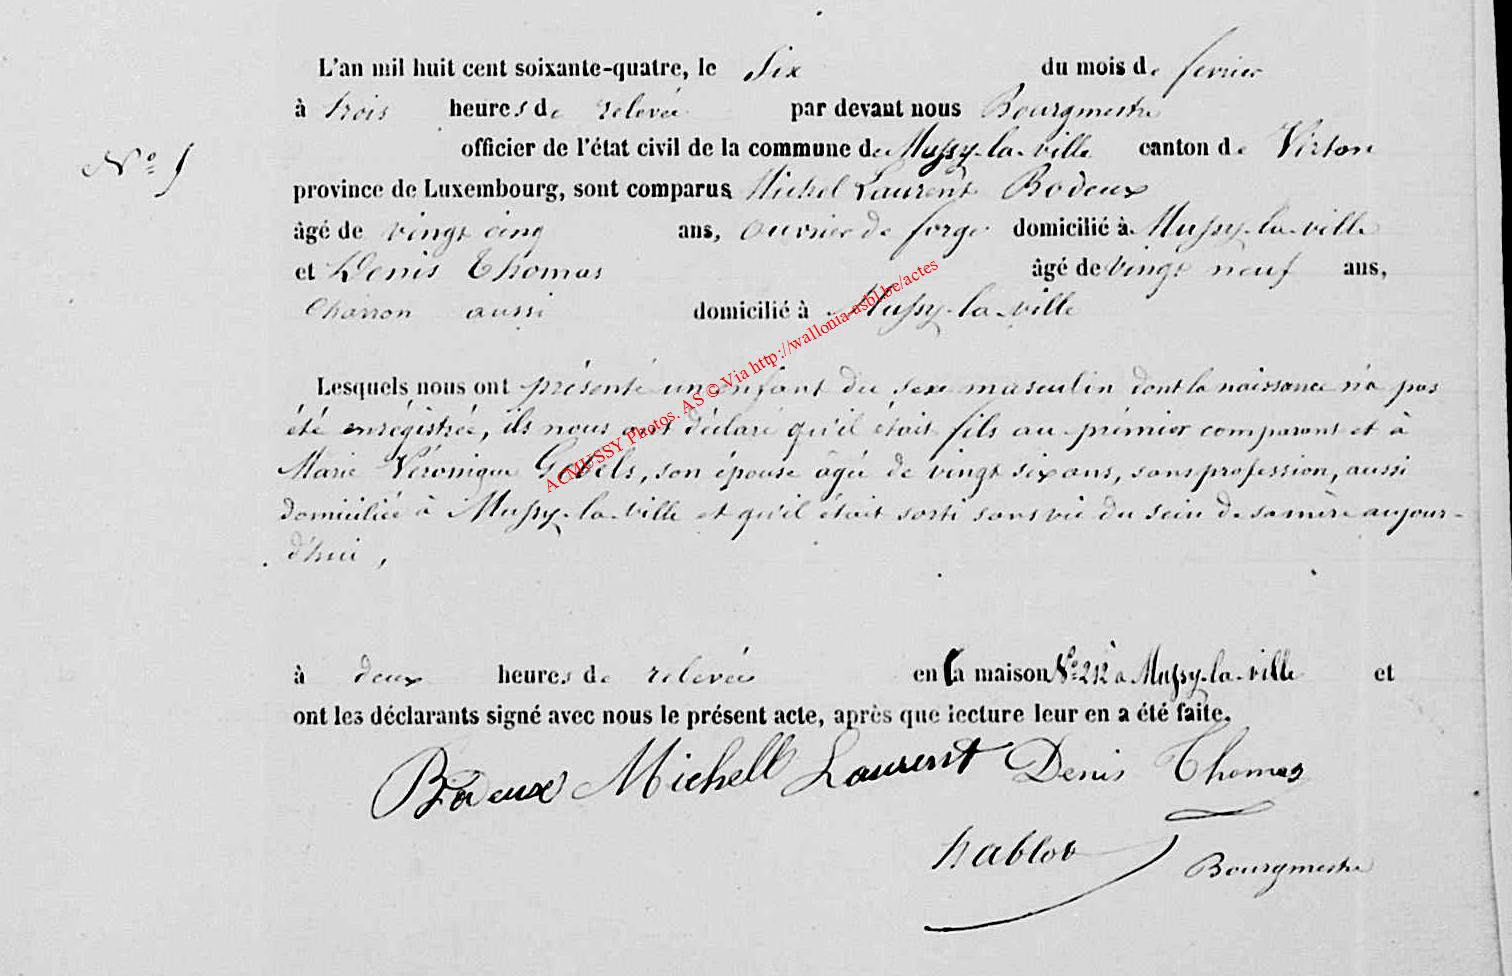 L'an mil huit cent soixante-quatre, le Six du mois de fevrier
à trois heures de relevée par devant nous Bourgmestre
officier de l'état civil de la commune de Mussy-la-ville canton de Virton
N°
province de Luxembourg, sont comparus Michel Laurent Bodeux
âgé de vingt cinq ans, ouvrier de forge domicilié à Mussy-la-ville
et Denis Thomas âgé de vingt neuf ans,
Charron aussi domicilié à Mussy-la-ville
ACMUSSY Photos. AS © Via http://wallonia-asbl.be/actes
Lesquels nous ont présenté un enfant du sexe masculin dont la naissance n'a pas
été enrégistrée, ils nous ont déclaré qu'il était fils au prémier comparant et à
Marie Véronique Gobels, son épouse âgée de vingt six ans, sans profession, aussi
domiciliée à Mussy-la-ville et qu'il était sorti sans vie du sein de sa mère aujour-
d'hui,
à deux heures de relevée en la maison N° 212 à Mussy-la-ville et
ont les déclarants signé avec nous le présent acte, après que lecture leur en a été faite.
Bodeux Michell Laurent Denis Thomas
Bourgmestre